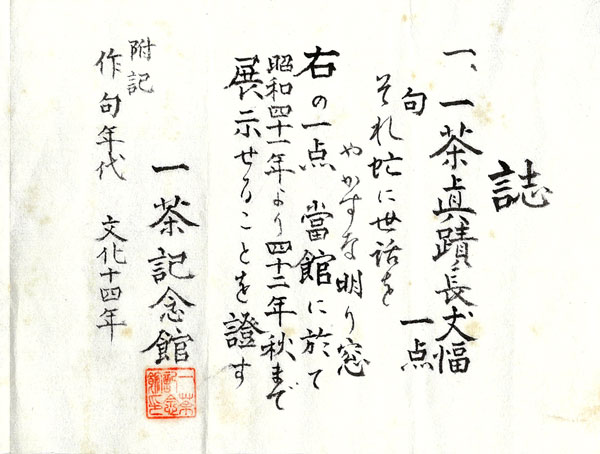 誌
一、一茶眞蹟長大幅 一点
句
それ虻に世話を
やかすな明り窓
右の一点 當館に於て
昭和四十一年より四十二年秋まで
展示せることを證す
一茶記念館
一茶記念館印
附記
作句年代 文化十四年